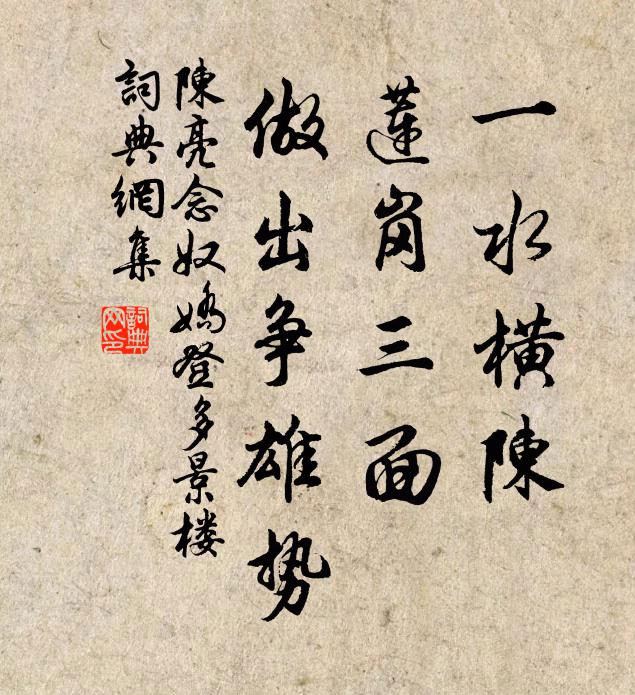 一水橫陳
蓮崗三面
做出争雄势
陳亮念奴嬌登多景楼
詞典網集
詞典
网印